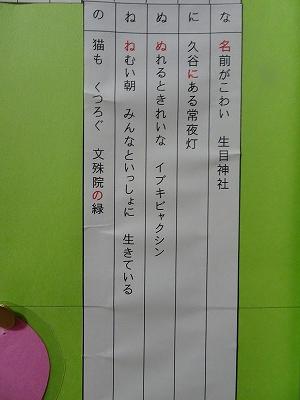 な 名前がこわい 生目神社
に 久谷にある常夜灯
ぬ ぬれるときれいな イブキビャクシン
ね ねむい朝 みんなといっしょに 生きている
の 猫も くつろぐ 文殊院の緑